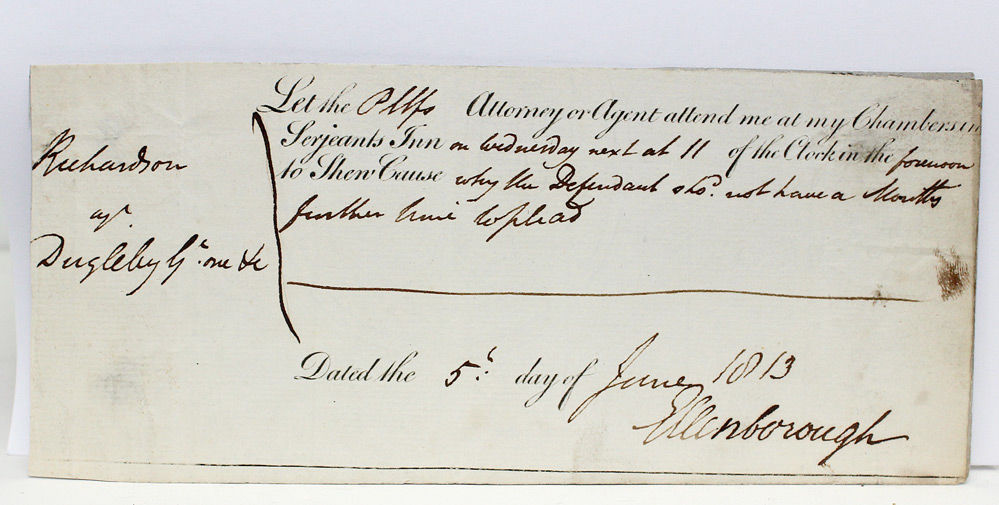 Let the Pltfs Attorney or Agent attend me at my Chambers in
Serjeants Inn on Wednesday next at 11 of the Clock in the forenoon
to Shew Cause why the Defendant sho.d not have a Months
further time to plead
Richardson
ag.t
Dugleby G.t one &c
Dated the 5.th day of June 1813
Ellenborough